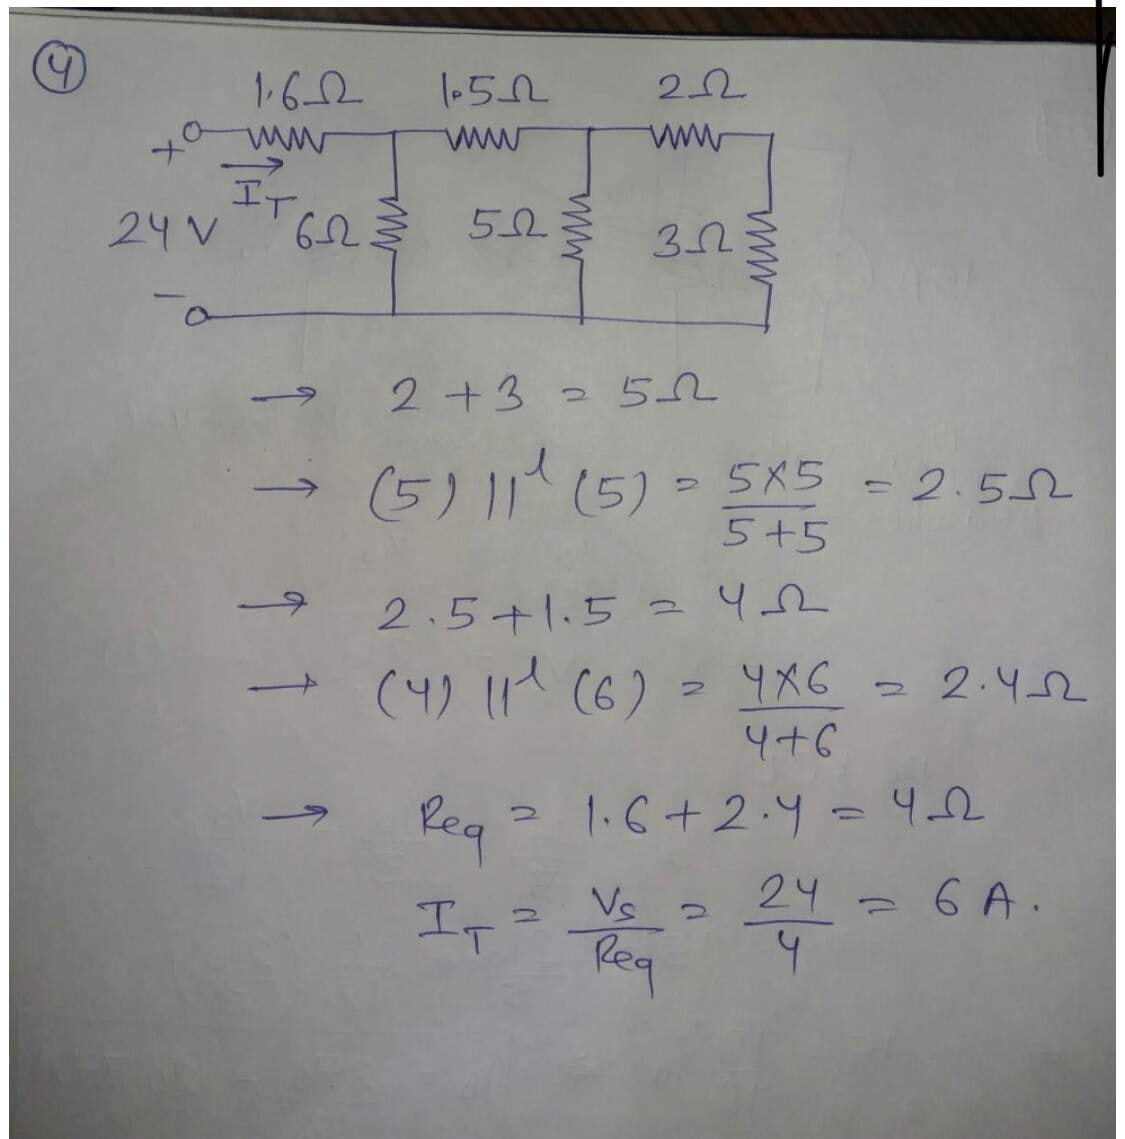 4
1.6Ω 1.5Ω 2Ω
+
I_T
24 V 6Ω 5Ω 3Ω
−
→ 2 + 3 = 5Ω
→ (5) ||ˡ (5) = 5×5/5+5 = 2.5Ω
→ 2.5+1.5 = 4Ω
→ (4) ||ˡ (6) = 4×6/4+6 = 2.4Ω
→ Req = 1.6+2.4 = 4Ω
I_T = Vs/Req = 24/4 = 6 A.